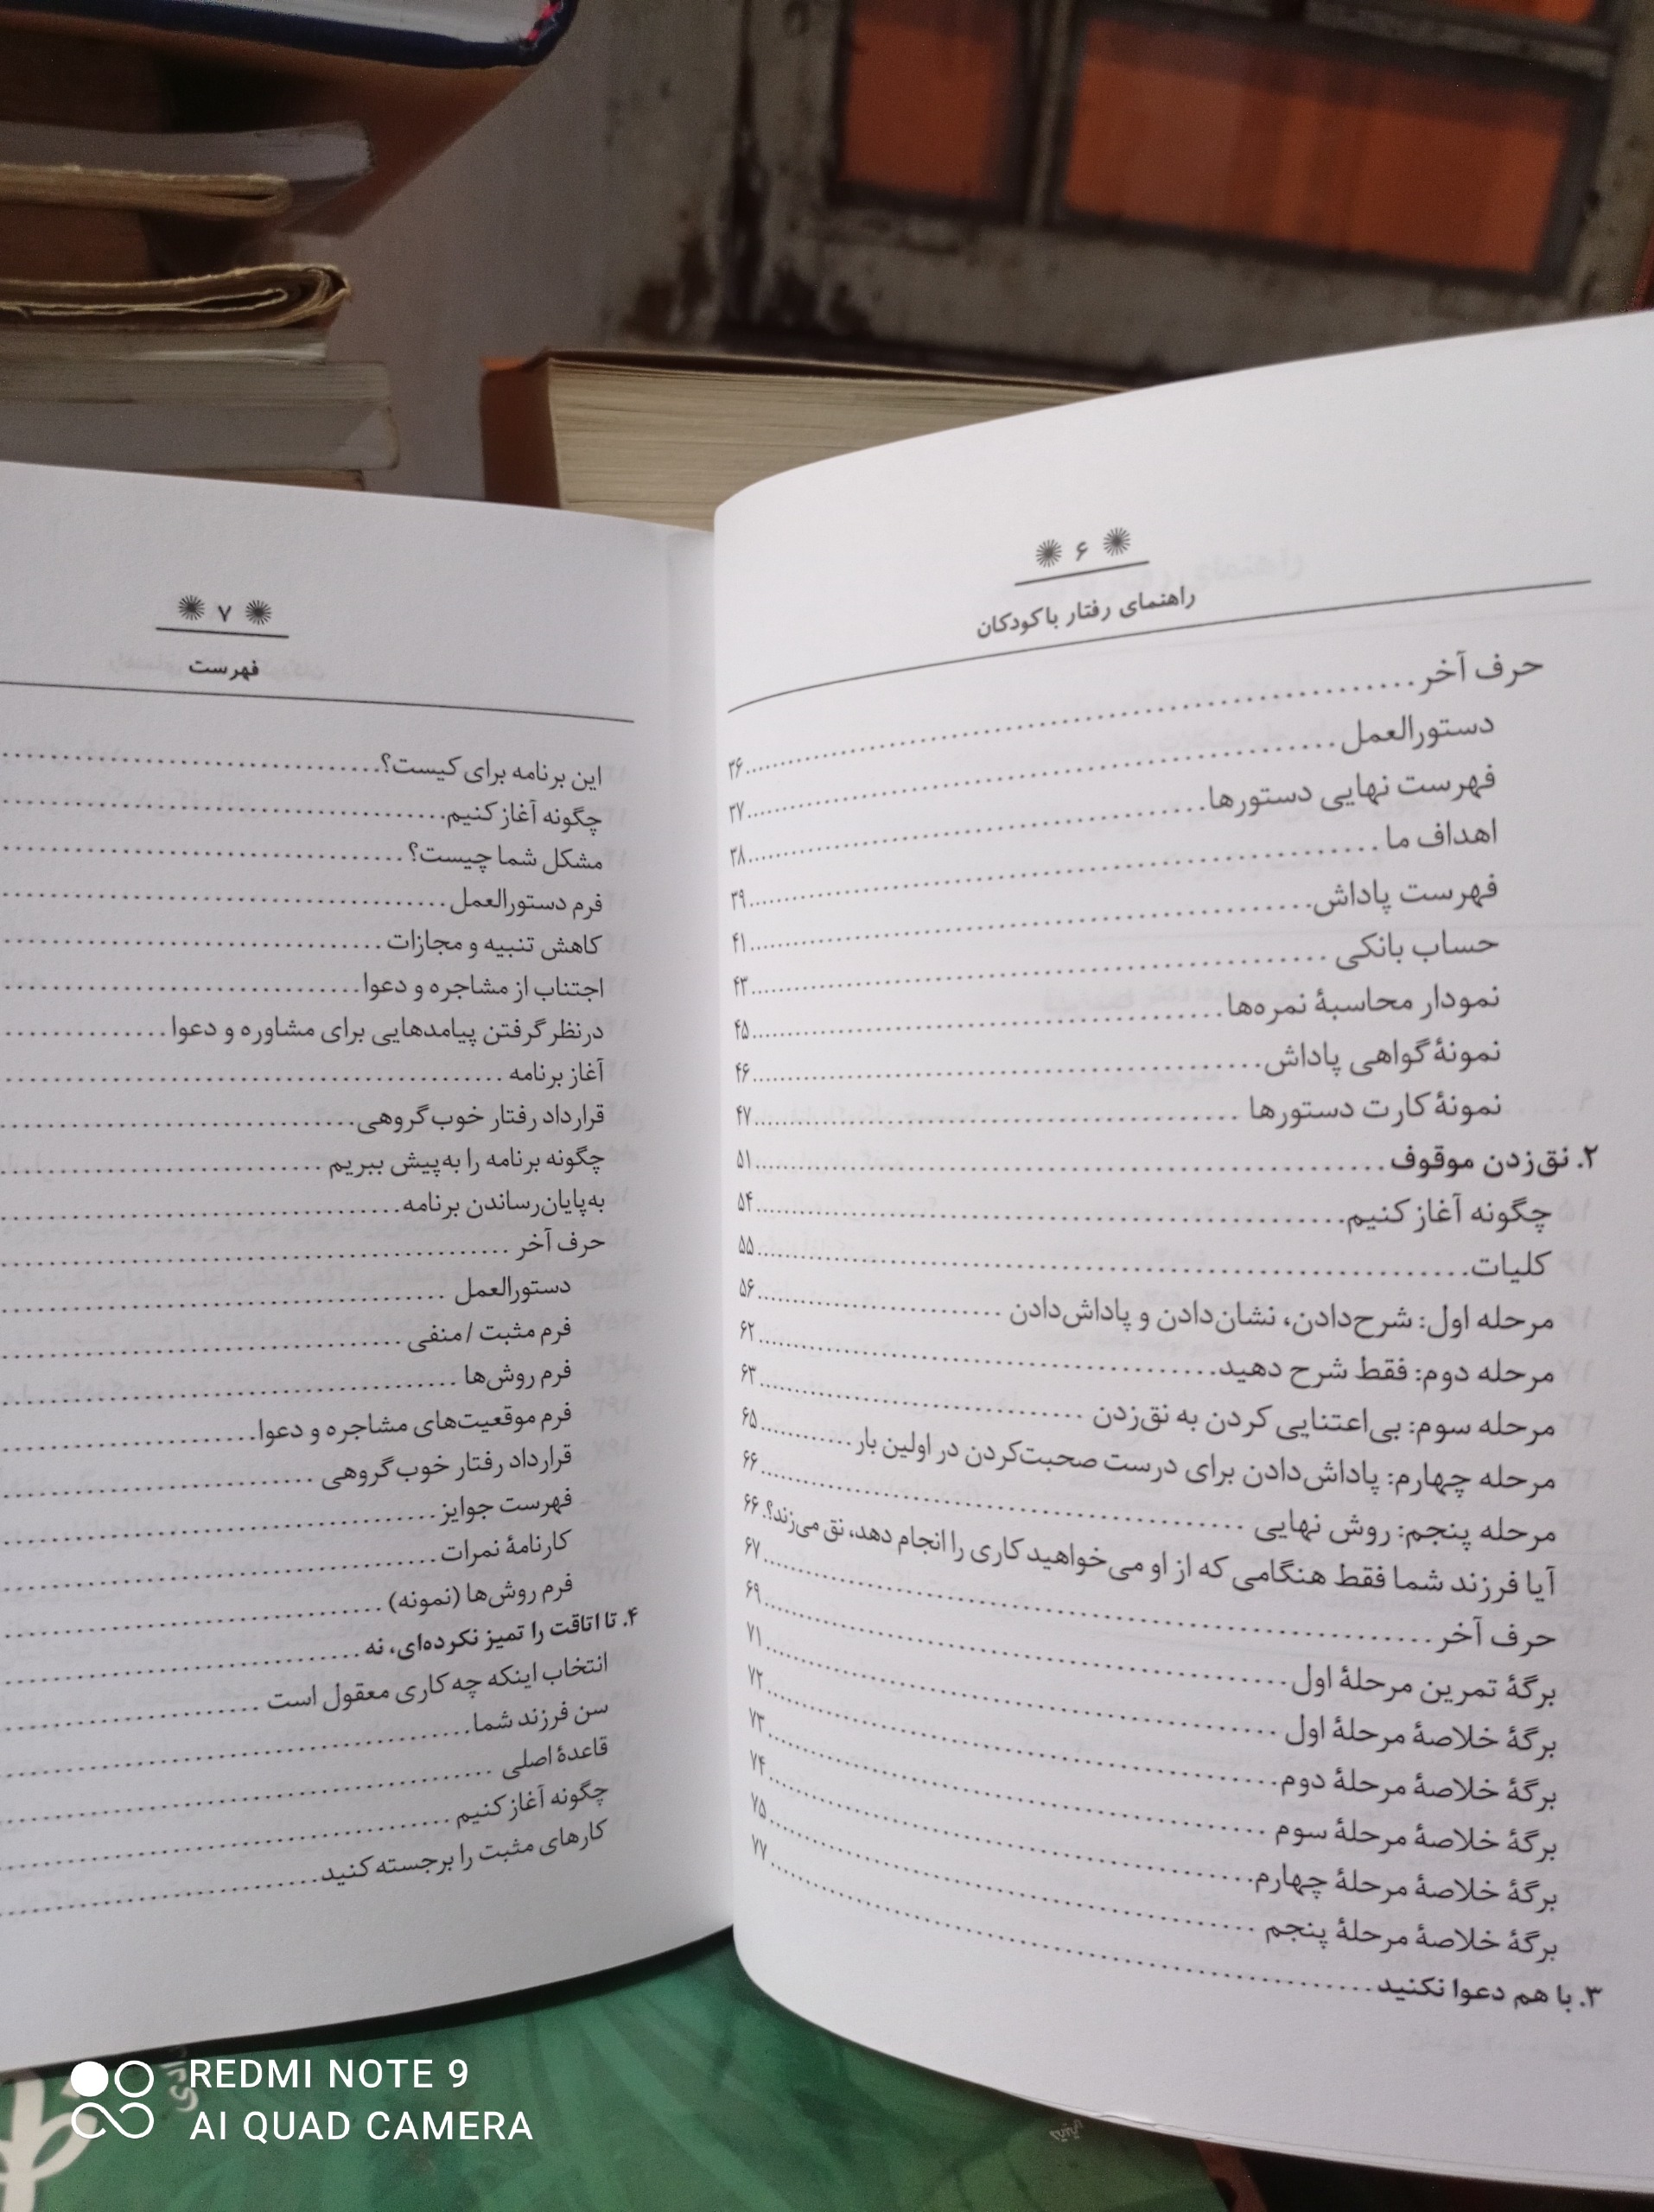 ۶
راهنمای رفتار با کودکان
حرف آخر ........ ۳۶
دستورالعمل ........ ۳۷
فهرست نهایی دستورها ........ ۳۸
اهداف ما ........ ۳۹
فهرست پاداش ........ ۴۱
حساب بانکی ........ ۴۳
نمودار محاسبۀ نمره‌ها ........ ۴۵
نمونۀ گواهی پاداش ........ ۴۶
نمونۀ کارت دستورها ........ ۴۷
۲. نق‌زدن موقوف ........ ۵۱
چگونه آغاز کنیم ........ ۵۴
کلیات ........ ۵۵
مرحله اول: شرح‌دادن، نشان‌دادن و پاداش‌دادن ........ ۵۶
مرحله دوم: فقط شرح دهید ........ ۶۲
مرحله سوم: بی‌اعتنایی کردن به نق‌زدن ........ ۶۳
مرحله چهارم: پاداش‌دادن برای درست صحبت‌کردن در اولین بار ........ ۶۵
مرحله پنجم: روش نهایی ........ ۶۶
آیا فرزند شما فقط هنگامی که از او می‌خواهید کاری را انجام دهد، نق می‌زند؟. ۶۶
حرف آخر ........ ۶۷
برگۀ تمرین مرحلۀ اول ........ ۶۹
برگۀ خلاصۀ مرحلۀ اول ........ ۷۱
برگۀ خلاصۀ مرحلۀ دوم ........ ۷۲
برگۀ خلاصۀ مرحلۀ سوم ........ ۷۳
برگۀ خلاصۀ مرحلۀ چهارم ........ ۷۴
برگۀ خلاصۀ مرحلۀ پنجم ........ ۷۵
۳. با هم دعوا نکنید ........ ۷۷
۷
فهرست
این برنامه برای کیست؟ ........
چگونه آغاز کنیم ........
مشکل شما چیست؟ ........
فرم دستورالعمل ........
کاهش تنبیه و مجازات ........
اجتناب از مشاجره و دعوا ........
درنظر گرفتن پیامدهایی برای مشاوره و دعوا ........
آغاز برنامه ........
قرارداد رفتار خوب گروهی ........
چگونه برنامه را به‌پیش ببریم ........
به‌پایان‌رساندن برنامه ........
حرف آخر ........
دستورالعمل ........
فرم مثبت / منفی ........
فرم روش‌ها ........
فرم موقعیت‌های مشاجره و دعوا ........
قرارداد رفتار خوب گروهی ........
فهرست جوایز ........
کارنامۀ نمرات ........
فرم روش‌ها (نمونه) ........
۴. تا اتاقت را تمیز نکرده‌ای، نه ........
انتخاب اینکه چه کاری معقول است ........
سن فرزند شما ........
قاعدۀ اصلی ........
چگونه آغاز کنیم ........
کارهای مثبت را برجسته کنید ........
REDMI NOTE 9
AI QUAD CAMERA